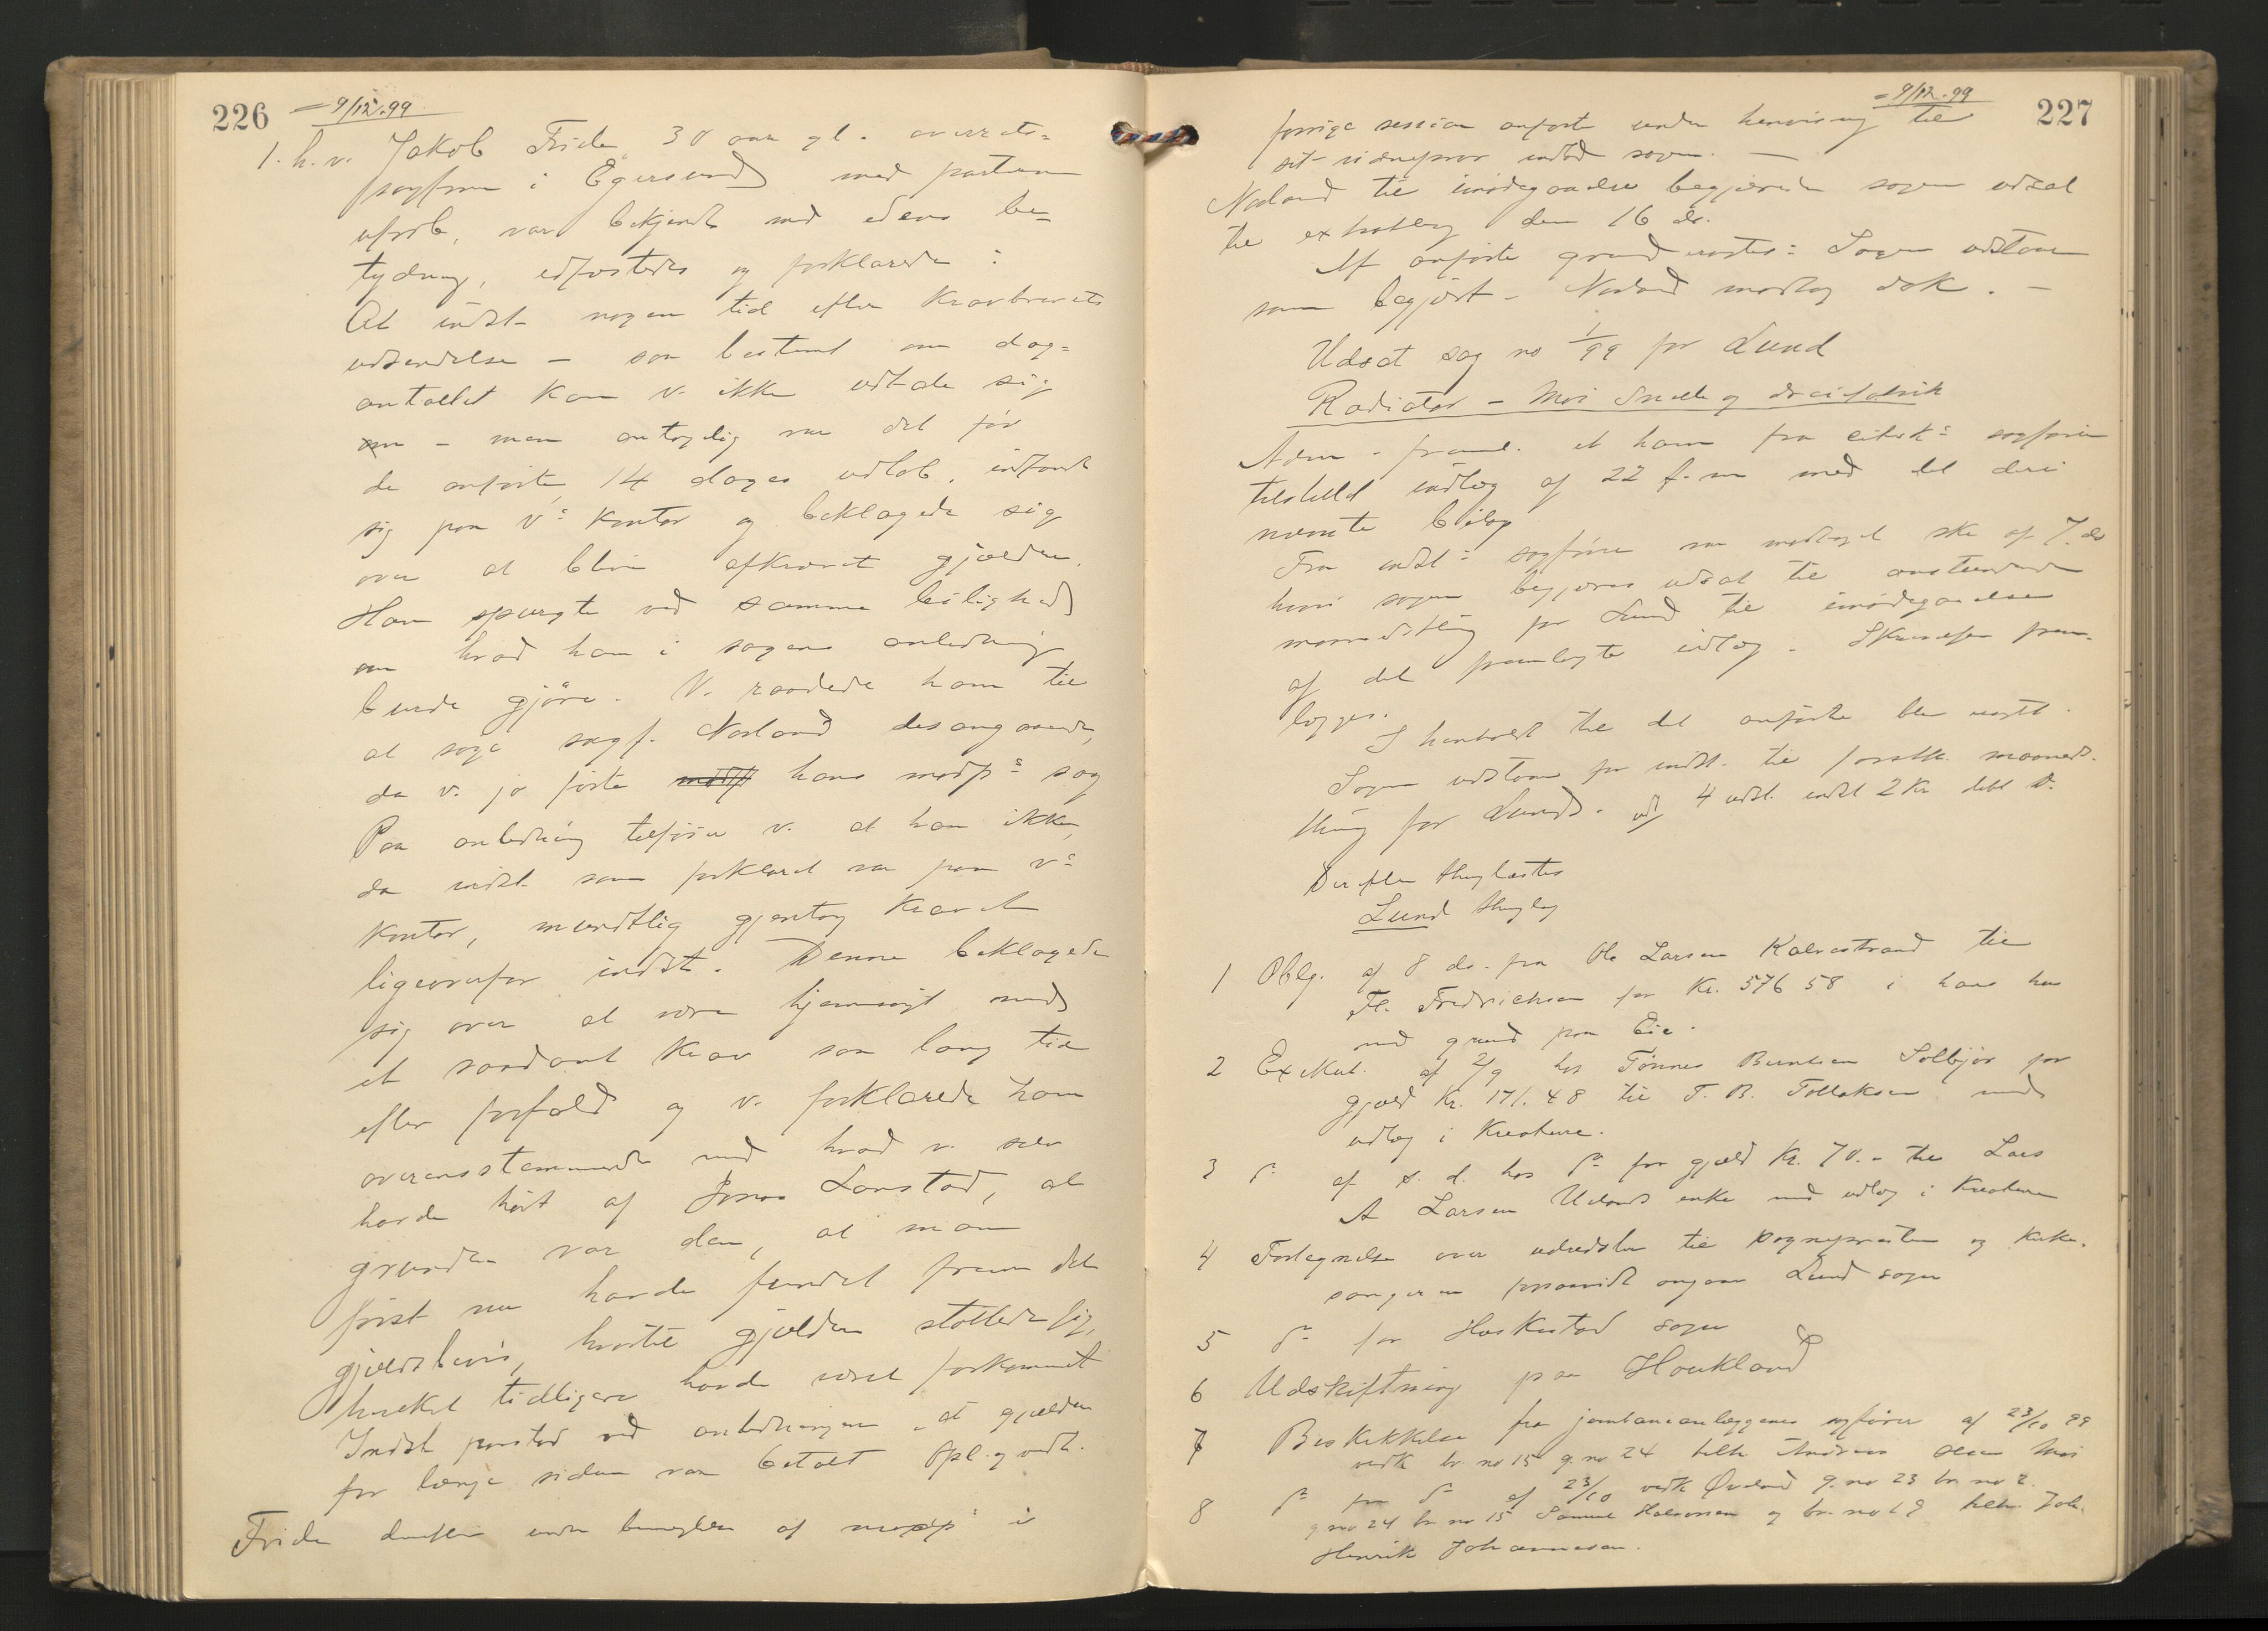 226 = 9/12.99
1. h.v. Jakob Frida, 30 aar gl. overrets-
sagfører i Egersund med parterne
ubesl., var bekjendt med edens be-
tydning, edfæstedes og forklarede:
At indst. nogen tid efter kravbrevets
udsendelse – saa bestemt om dag-
antallet kan v. ikke udtale sig
om – men antagelig var det før
de anførte 14 dages udløb, indfandt
sig paa v.s kontor og beklagede sig
over at blive afkrævet gjælden.
Han spurgte ved samme leilighed
om hvad han i sagens anledning
burde gjøre. V. raadede ham til
at søge sagf. Nodland desangaaende,
da v. jo førte hans modp.s sag
Paa anledning tilføier v. at han ikke,
da indst. som forklaret var paa v.s
kontor, mundtlig gjentog kravet
ligeoverfor indst. Denne beklagede
sig over at være hjemsøgt med
et saadant krav saa lang tid
efter forfald og v. forklarede ham
overensstemmende med hvad v. selv
havde hørt af Lonstad, at
grunden var den, at man
først nu havde fundet frem det
gjældsbevis, hvortil gjælden støttede sig,
hvilket tidligere havde været forkommet
Indst. paastod ved anledningen at gjælden
for længe siden var betalt Opl. og vedt.
Frida derefter under benægtelse af modp.s i
= 9/12.99 227
forrige session anførte under henvisning til
sit vidneprov indlod sagen. –
Nodland til imødegaaelse begjærede sagen udsat
til extrathing den 16 ds.
Af anførte grund eragtes: Sagen udstaar
som begjært – Nodland modtog dok. –
Udsat sag no 1/99 for Lund
Radiator – Moi Snelle og dreiefabrik
Adm. freml. et ham fra citk.s sagfører
tilstillet indlæg af 22 f.m. med det deri
nævnte bilag
Fra indst.s sagfører var modtaget skr. af 7. ds
hvori sagen begjæres udsat til anstundende
maanedsthing for Lund til imødegaaelse
af det fremlagte indlæg. Skrivelsen frem-
lægges.
I henhold til det anførte blev eragtet:
Sagen udstaar for indst. til førstk. maaneds-
thing for Lund. 4 udst. indst 2 Kr
Derefter thinglæstes
Lund thinglag
1 Oblg. af 8 ds. fra Ole Larsen Kalvestrand til
Fr. Fredrichsen for Kr. 576 58 i hans hus
med grund paa Eie.
2 Exekut. af 2/9 hos Tønnes Berntsen Solbjør for
gjæld Kr. 171.48 til T. B. Tollaksen med
udlæg i Kreature.
3 do af s. d. hos do for gjæld Kr. 70.– til Lars
A Larsen Uelands enke med udlæg i Kreature
4 Fortegnelse over udredsler til sognepresten og kirke-
sangeren forsaavidt angaar Lund sogn
5 do for Heskestad sogn
6 Udskiftning paa Haukland
7 Beskikkelse fra jernbaneanlæggenes sagfører af 23/10 99
vedk br. no 15 g. no 24 tilh. Andreas Olsen Moi
8 do fra do af 23/10 vedk Øvelund g. no 23 br. no 2.
g no 24 br. no 15 Samuel Halvorsen og br. no 19 tilh. Joh.
Henrik Johannesen.